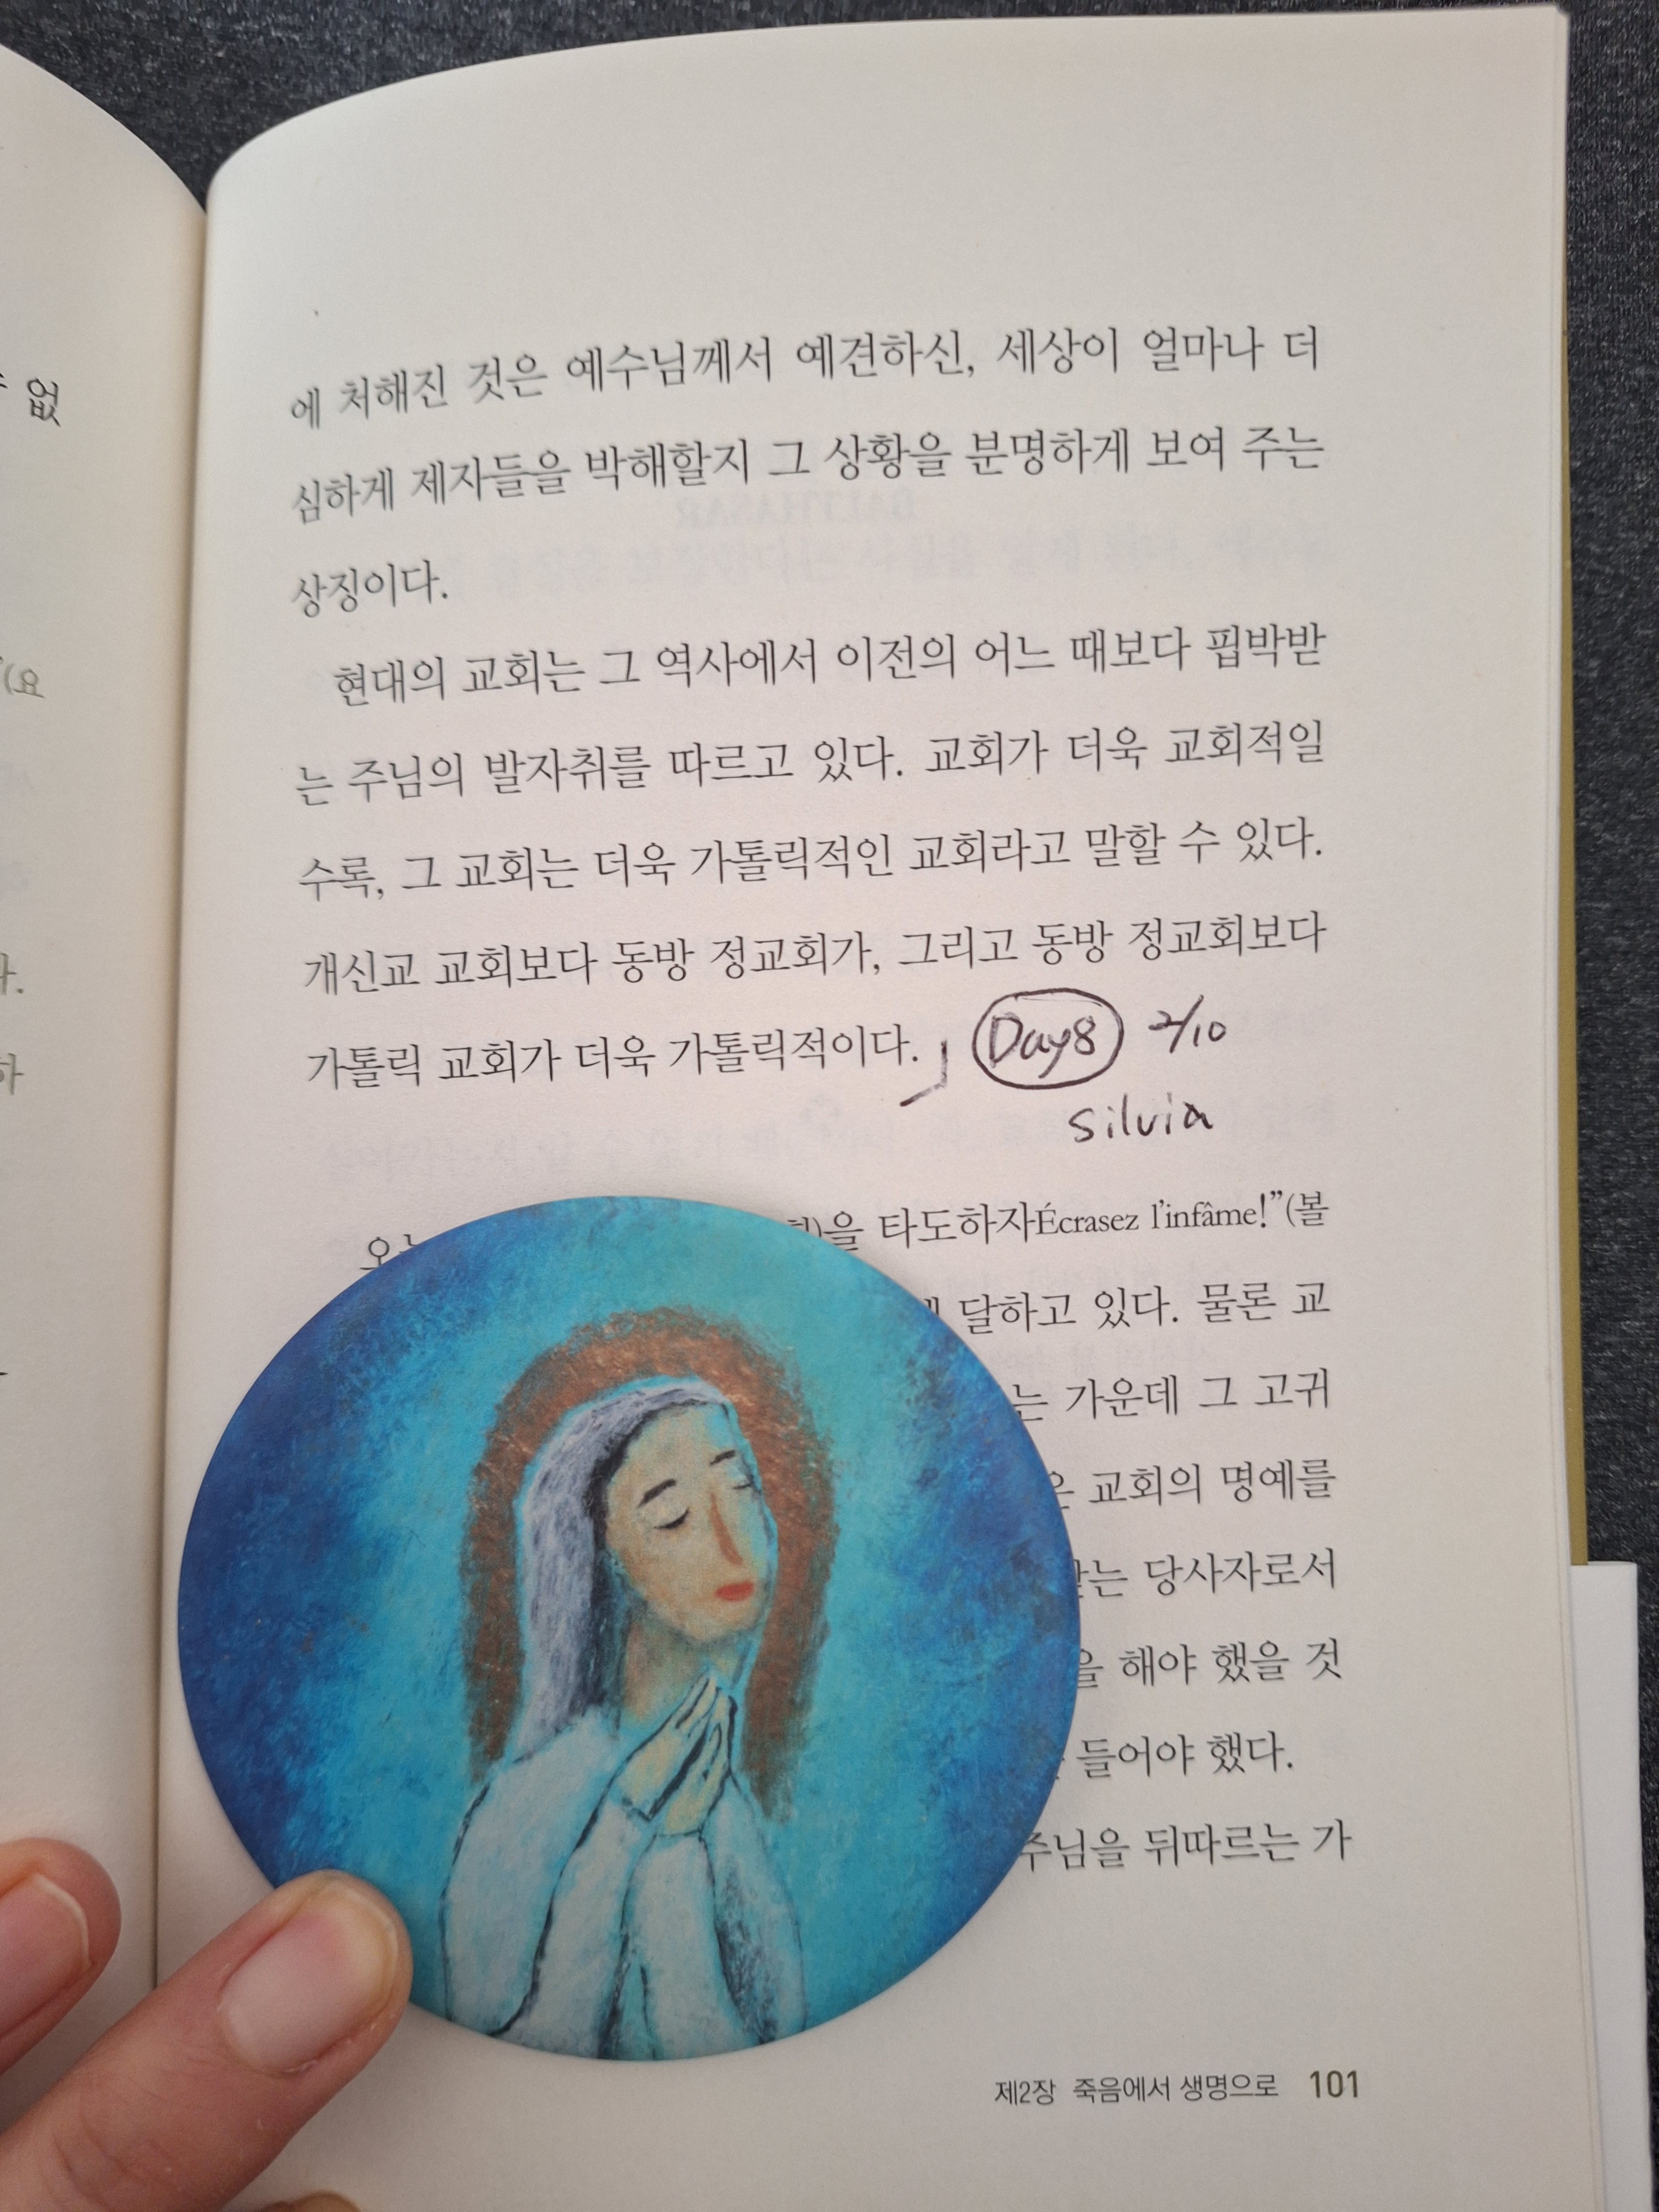 없
(요
다.
하
에 처해진 것은 예수님께서 예견하신, 세상이 얼마나 더
심하게 제자들을 박해할지 그 상황을 분명하게 보여 주는
상징이다.
현대의 교회는 그 역사에서 이전의 어느 때보다 핍박받
는 주님의 발자취를 따르고 있다. 교회가 더욱 교회적일
수록, 그 교회는 더욱 가톨릭적인 교회라고 말할 수 있다.
개신교 교회보다 동방 정교회가, 그리고 동방 정교회보다
가톨릭 교회가 더욱 가톨릭적이다. Day8 2/10
silvia
을 타도하자Écrasez l'infâme!”(볼
달하고 있다. 물론 교
는 가운데 그 고귀
교회의 명예를
는 당사자로서
을 해야 했을 것
들어야 했다.
주님을 뒤따르는 가
제2장 죽음에서 생명으로 101